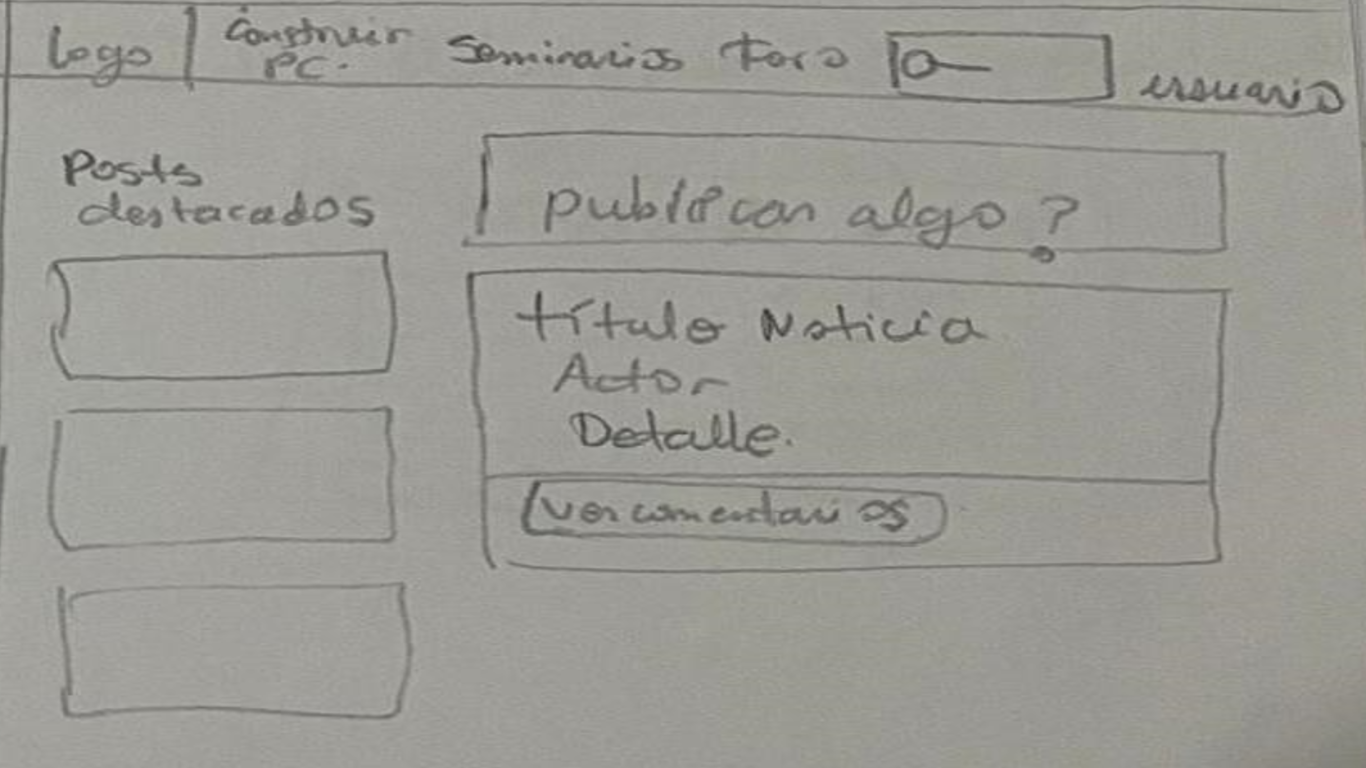 Logo
Construir
PC.
Seminarios
Foro
usuario
Posts
destacados
publicar algo?
título Noticia
Actor
Detalle.
ver comentarios